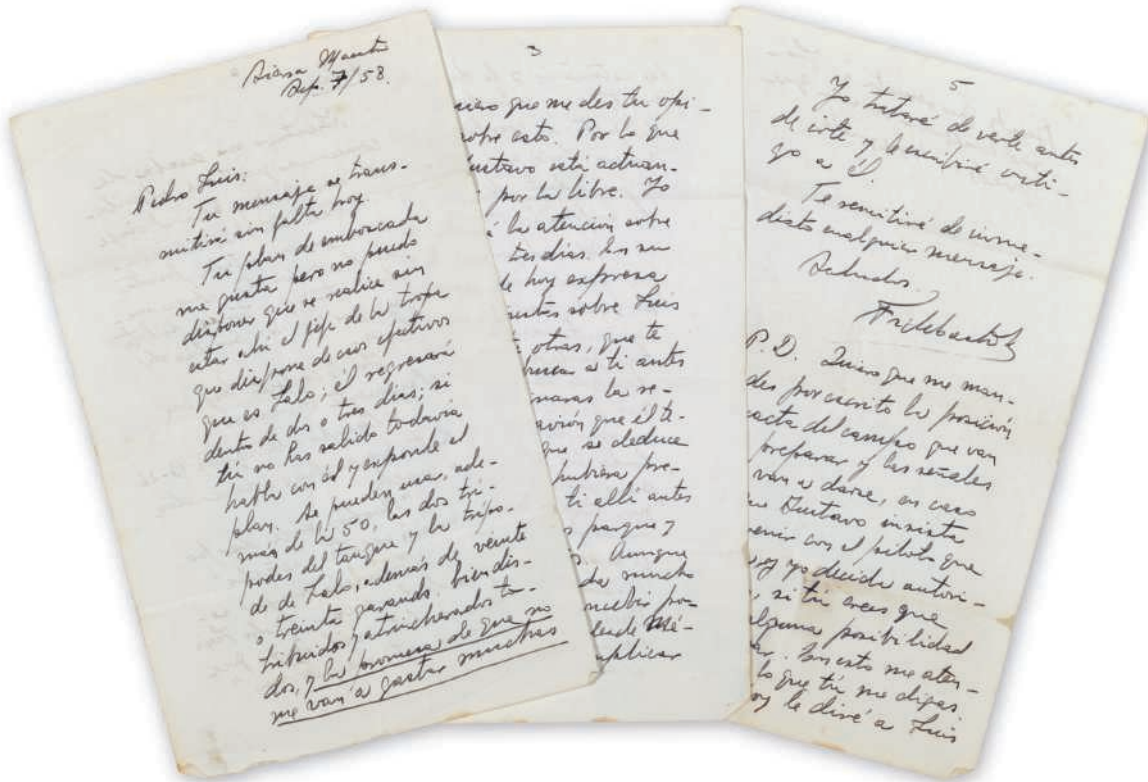 Sierra Maestra
Sep. 7/58.
Pedro Luis:
Tu mensaje se trans-
mitirá sin falta hoy.
Tu plan de emboscada
me gusta pero no puedo
disponer que se realice sin
estar ahí el jefe de la tropa
que dispone de esos efectivos
que es Lalo; él regresará
dentro de dos o tres días; si
tú no has salido todavía
habla con él y exponle el
plan. Se pueden usar, ade-
más de la 50, las dos trí-
podes del tanque y la trípo-
de de Lalo, además de veinte
o treinta garands bien dis-
tribuidos y atrincherados to-
dos, y la promesa de que no
me van a gastar muchas
3
quiero que me des tu opi-
sobre esto. Por lo que
Gustavo está actuan-
por la libre. Yo
la atención sobre
tres días. En su
de hoy expresa
sobre Luis
otras, que te
a ti antes
la re-
avión que él te-
que se deduce
hubiera pre-
ti allí antes
parque y
Aunque
mucho
po-
desde Mé-
aplicar
5
Yo trataré de verte antes
de irte y le escribiré conti-
go a él.
Te remitiré de inme-
diato cualquier mensaje.
Saludos,
Fidel Castro R
P.D. Quiero que me man-
des por escrito la posición
exacta del campo que van
preparar y las señales
van a darse, en caso
que Gustavo insista
venir con el piloto que
y yo decida autori-
si tú crees que
alguna posibilidad
En esto me aten-
lo que tú me digas.
le diré a Luis